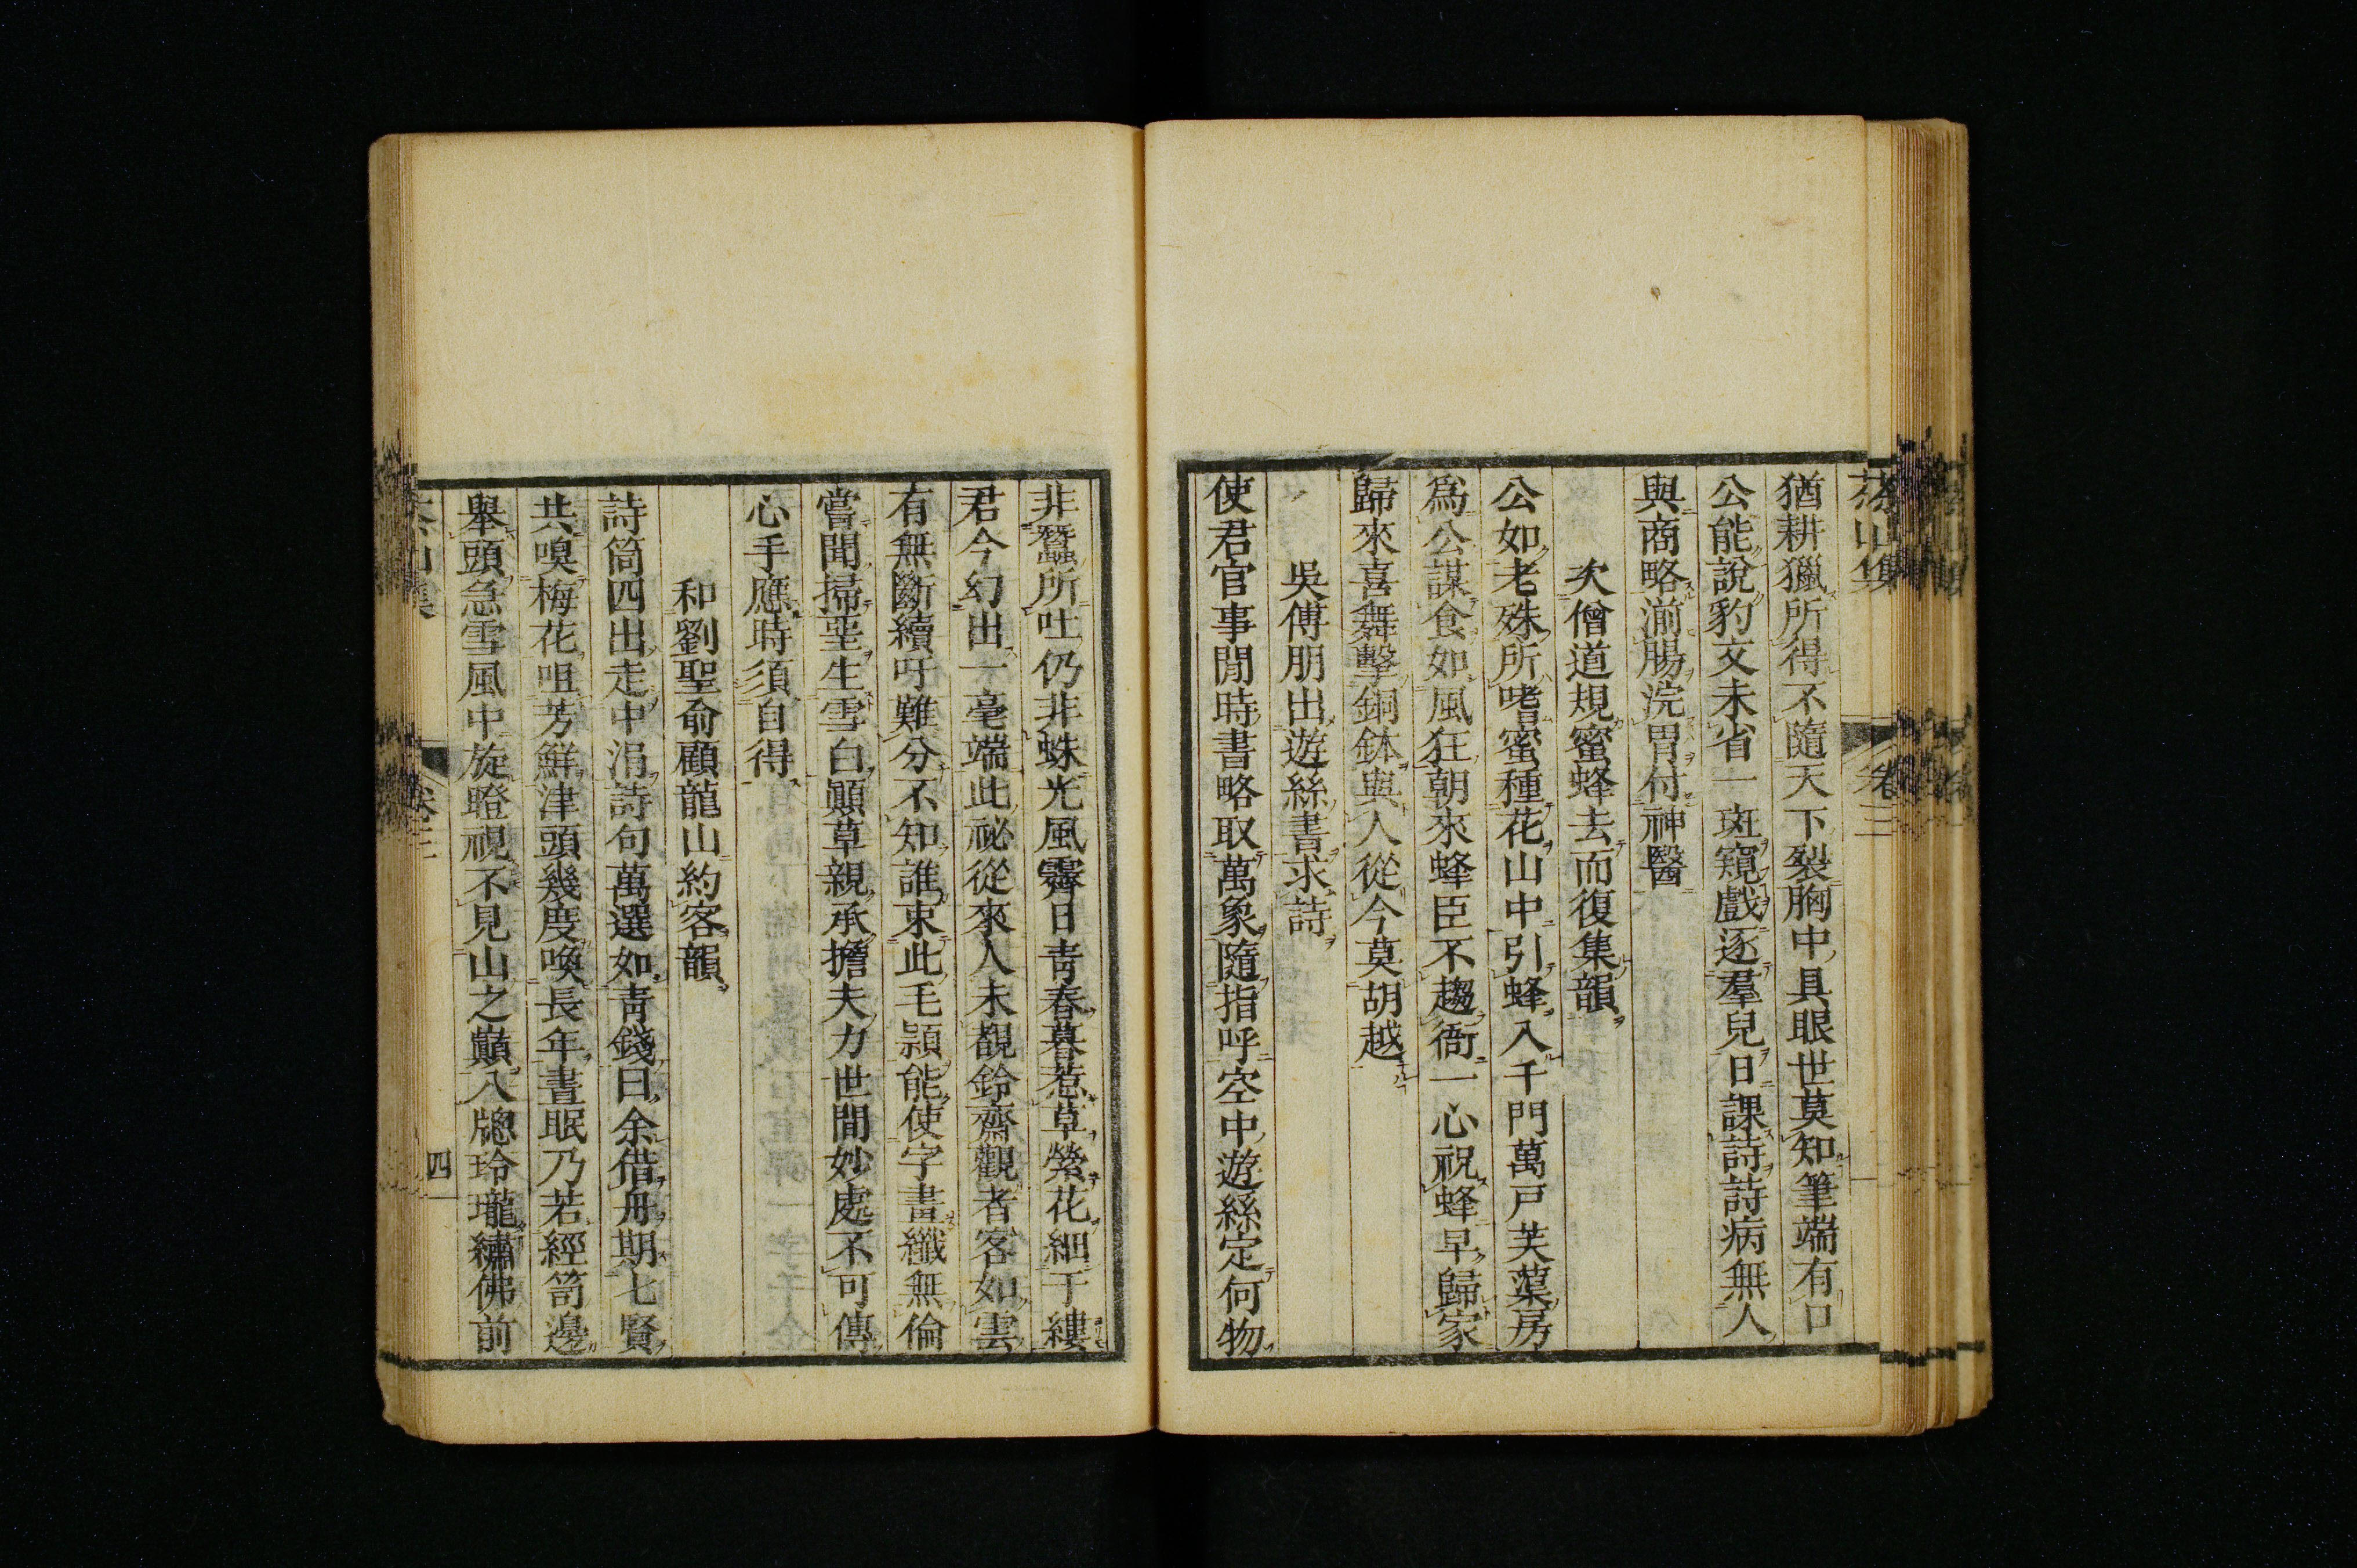 茶山集
卷三
猶耕獵所得不隨天下裂胸中具眼世莫知筆端有口
公能說豹文未省一斑窺戲逐羣兒日課詩詩病無人
與商略湔腸浣胃付神醫
次僧道規蜜蜂去而復集韻
公如老殊所嗜蜜種花山中引蜂入千門萬戸芙蕖房
爲公謀食如風狂朝來蜂臣不趨衙一心祝蜂早歸家
歸來喜舞擊銅鉢與人從今莫胡越
吳傅朋出遊絲書求詩
使君官事閒時書略取萬象隨指呼空中遊絲定何物
非蠶所吐仍非蛛光風霽日青春暮惹草縈花細于縷
君今幻出一毫端此祕從來人未覩鈴齋觀者客如雲
有無斷續吁難分不知誰束此毛頴能使字畫纖無倫
嘗聞掃堊生雪白顚草親承擔夫力世間妙處不可傳
心手應時須自得
和劉聖俞顧龍山約客韻
詩筒四出走中涓詩句萬選如青錢曰余借舟期七賢
共嗅梅花咀芳鮮津頭幾度喚長年晝眠乃若經笥邊
舉頭急雪風中旋瞪視不見山之巓入牕玲瓏繡佛前
茶山集
卷三
四